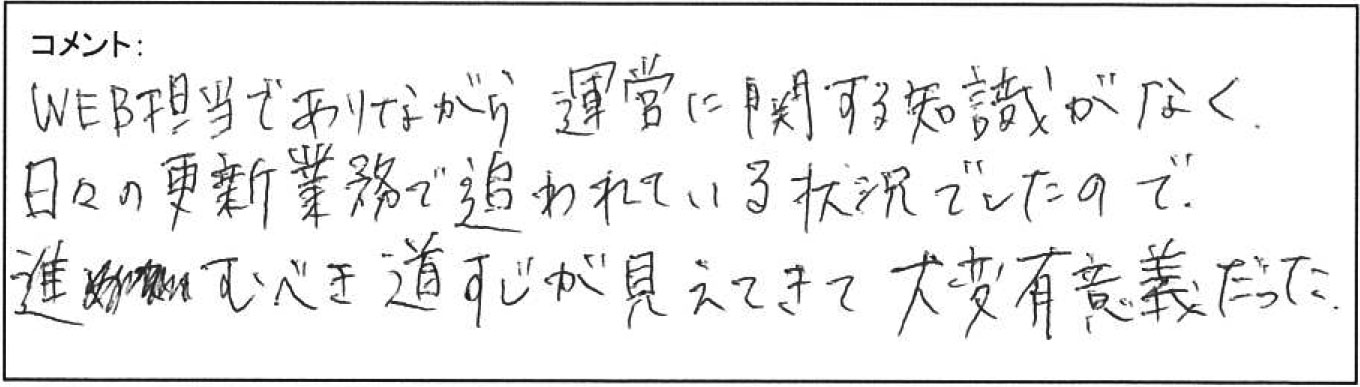 コメント:
WEB担当でありながら運営に関する知識がなく、
日々の更新業務で追われている状況でしたので、
進むべき道すじが見えてきて大変有意義だった。